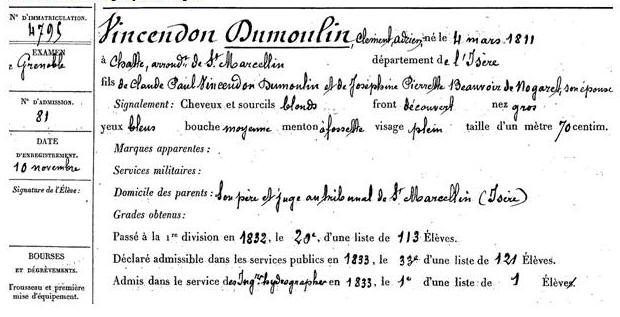 N° D'IMMATRICULATION.
4795
EXAMEN
de Grenoble
N° D'ADMISSION.
81
DATE
D'ENREGISTREMENT.
10 novembre
Signature de l'Élève :
BOURSES
ET DÉGRÈVEMENTS.
Trousseau et première
mise d'équipement.
Vincendon Dumoulin, Clément, adrien, né le 4 mars 1811
à Chatte, arrondt de St Marcellin département de l'Isère
fils de Claude Paul Vincendon Dumoulin et de Joséphine Pierrette Beauvoir de Nogaret, son épouse
Signalement : Cheveux et sourcils blonds front découvert nez gros
yeux bleus bouche moyenne menton à fossette visage plein taille d'un mètre 70 centim.
Marques apparentes :
Services militaires :
Domicile des parents : Son père est juge au tribunal de St Marcellin (Isère)
Grades obtenus :
Passé à la 1re division en 1832, le 20e, d'une liste de 113 Élèves.
Déclaré admissible dans les services publics en 1833, le 33e d'une liste de 121 Élèves.
Admis dans le service des Ingrs hydrographes en 1833, le 1er d'une liste de 1 Élèves.